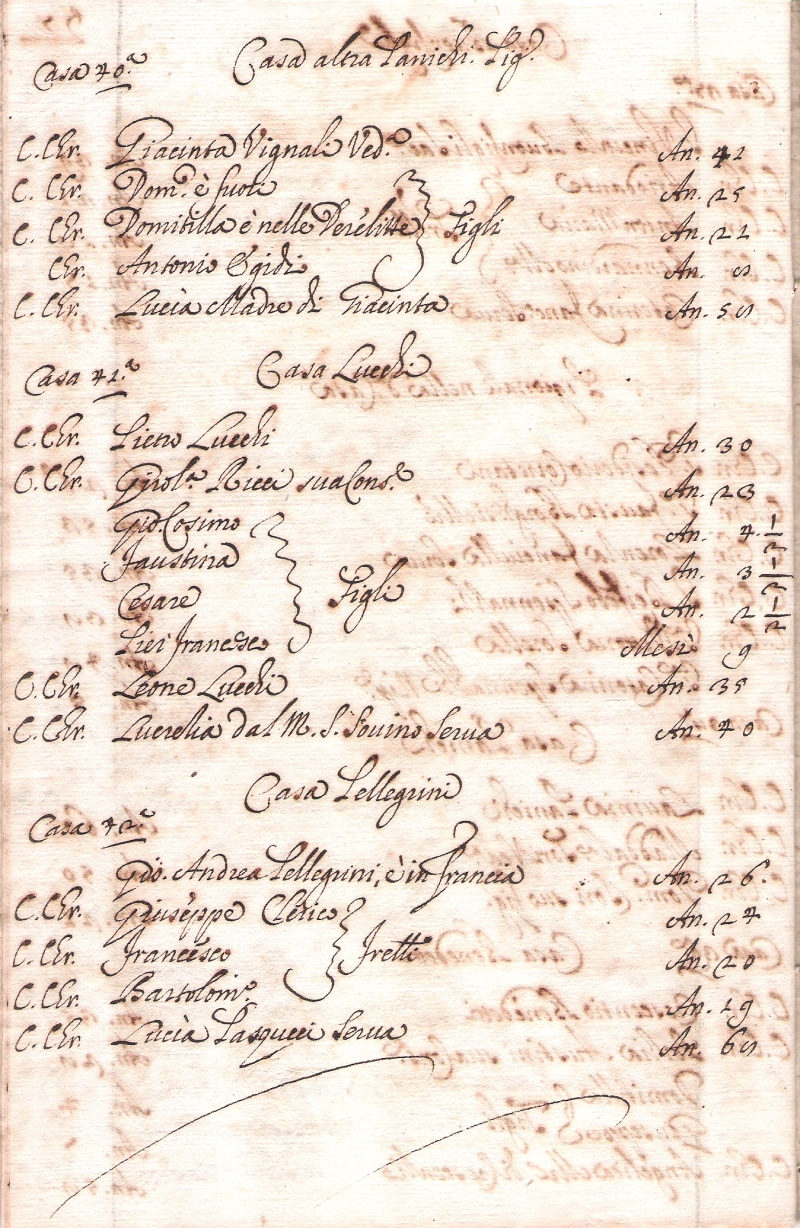 Casa 40.ª Casa altra Panichi. Pig.
C. Chr. Giacinta Vignali Ved.ª An. 42
C. Chr. Dom.º è fuori An. 25
C. Chr. Domitilla è nelle Derelitte Figli An. 21
Chr. Antonio Egidio An.
C. Chr. Lucia Madre di Giacinta An.
Casa 41.ª Casa Lucchi
C. Chr. Pietro Lucchi An. 30
C. Chr. Girol.ª Ricci sua Cons.e An. 23
Gio. Cosimo An. 4. 1/2
Faustina An. 3 1/2
Cesare Figli An. 2 1/2
Pier francesco Mesi 9
C. Chr. Leone Lucchi An. 35
C. Chr. Lucrelia dal M. S. Sovino Serva An. 40
Casa Pellegrini
Casa 42.ª
Gio. Andrea Pellegrini, è in francia An. 26.
C. Chr. Giuseppe Clerico An. 24
C. Chr. Francesco Fretti An. 20
C. Chr. Bartolom.º An. 19
C. Chr. Lucia Pasqucci Serva An.